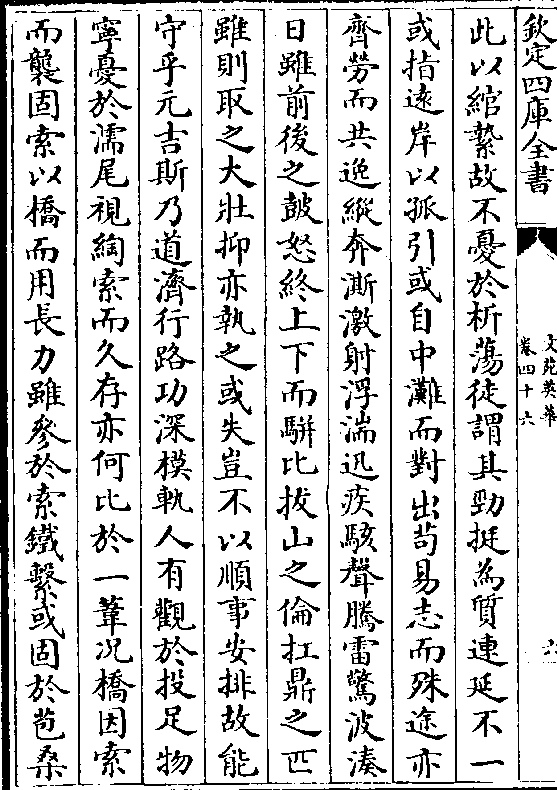 欽定四庫全書
文苑英華
卷四十六
六
此以綰縶故不憂於析蕩徒謂其勁挺為質連延不一
或指遠岸以孤引或自中灘而對出茍易志而殊途亦
齊勞而共逸縱奔澌激射浮湍迅疾駭聲騰雷驚波湊
日雖前後之皷怒終上下而駢比拔山之倫扛鼎之匹
雖則取之大壯抑亦執之或失豈不以順事安排故能
守乎元吉斯乃道濟行路功深模軌人有觀於投足物
寧憂於濡尾視綯索而久存亦何比於一葦况橋因索
而襲固索以橋而用長力雖參於索鐵繫或固於苞桑